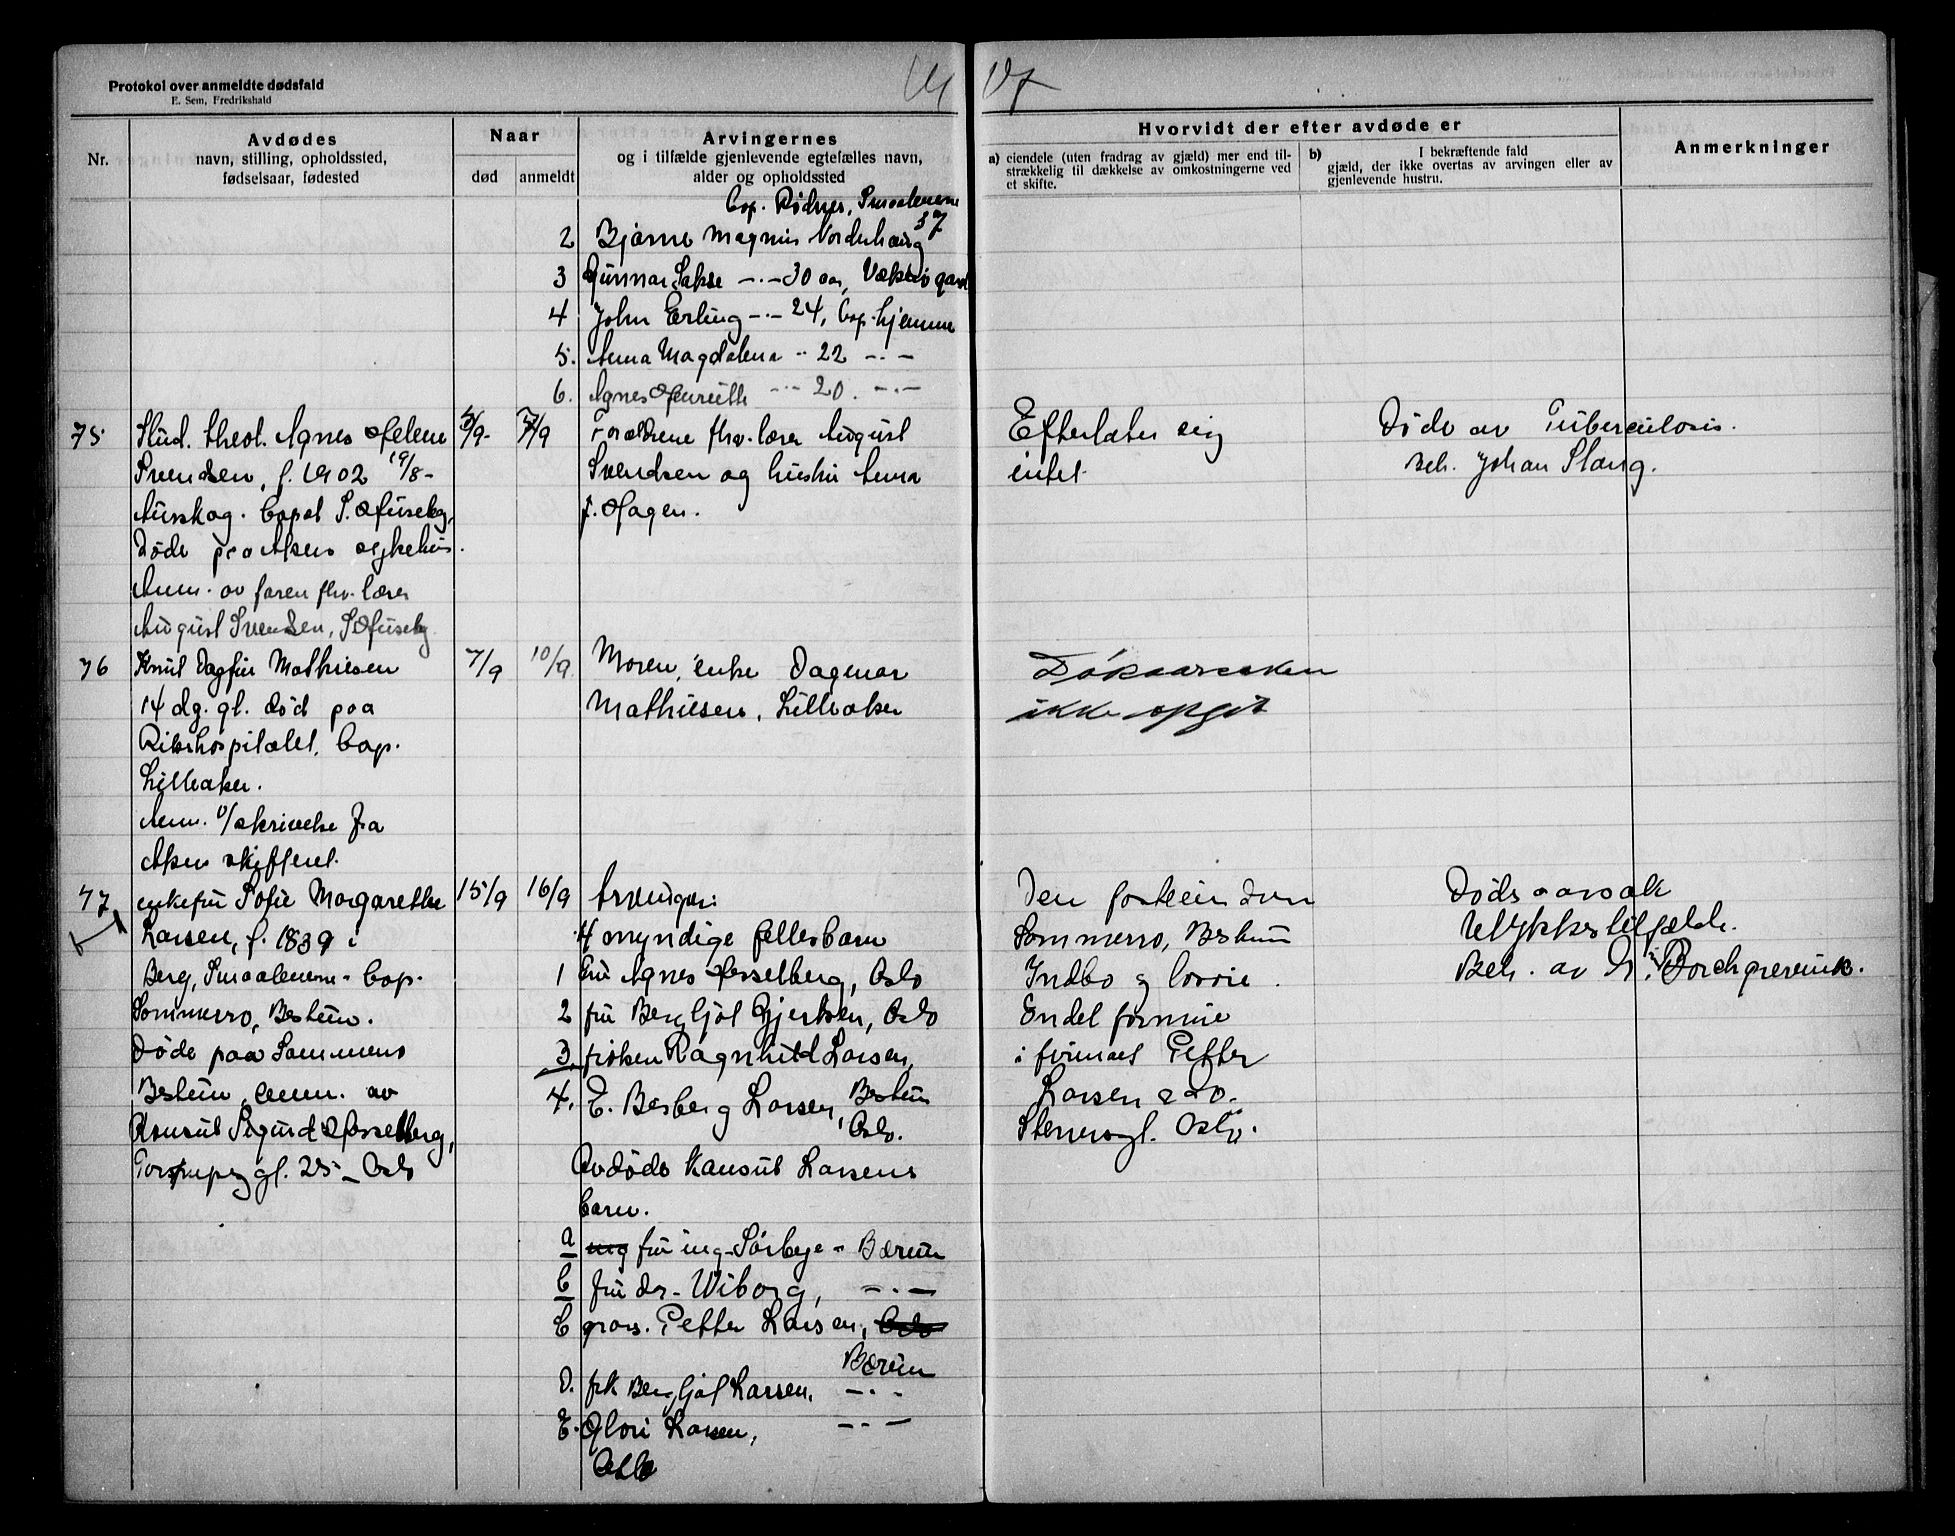 Protokol over anmeldte dødsfald
E. Sem, Fredrikshald
Nr.
Avdødes
navn, stilling, opholdssted,
fødselsaar, fødested
Naar
død
anmeldt
Arvingernes
og i tilfælde gjenlevende egtefælles navn,
alder og opholdssted
Hvorvidt der efter avdøde er
a) eiendele (uten fradrag av gjæld) mer end til-
strækkelig til dækkelse av omkostningerne ved
et skifte.
b) I bekræftende fald
gjæld, der ikke overtas av arvingen eller av
gjenlevende hustru.
Anmerkninger
bop. Rødnes, Smaalenene
37
2 Bjarne Magnus Nordenhaug
3 Gunnar Sakse -·- 30 aar,
4 John Erling -·- 24, bop. hjemme
5. Anna Magdalena -·- 22 -·-
6. Agnes Henriette -·- 20. -·-
75 Stud. theol. Agnes Helene
Svendsen, f. 1902 19/8 -
Aurskog. bopæl S. Huseby,
Døde paa Akers sykehus.
Anm. av faren fhv. lærer
August Svendsen, S. Huseby
5/9- 7/9
Forældrene fhv. lærer August
Svendsen og hustru Anna
f. Hagen.
Efterlater sig
intet
Døde av Tuberculosis.
Beh. Johan Stang.
76 Knut Dagfin Mathiesen
14 dg. gl. død paa
Rikshospitalet, bop.
Lilleaker.
Anm. v/skrivelse fra
Aker skifteret.
7/9 10/9
Moren, enke Dagmar
Mathiesen, Lilleaker
Dødsaarsaken
ikke opgit
77 enkefru Sofie Margarethe
Larsen, f. 1839 i
Berg, Smaalenene - bop.
Sommerro, Bestum.
Døde paa Sommerro
Bestum, anm. av
Konsul Sigurd Hesselberg,
gt. 25 - Oslo
15/9 16/9
Arvinger:
4 myndige fellesbarn
1 fru Agnes Hesselberg, Oslo
2 fru Bergljot Gjertsen, Oslo
3 frøken Ragnhild Larsen,
Bestum
4. E. Berberg Larsen,
Oslo.
Avdøde Konsul Larsens
barn.
a fru ing. Sørbye - Bærum
b fru dr. Wiborg, -·-
c gros. Petter Larsen, Oslo
Bærum
D. frk Bergljot Larsen, -·-
E. Glori Larsen, -·-
Oslo
Den faste eiendom
Sommerro, Bestum
Indbo og løsøre.
Endel formue
i firmaet Petter
Larsen & Co.
Stenersgt. Oslo.
Dødsaarsak
Ulykkestilfælde.
Beh. av Dr. Borchgrevink.